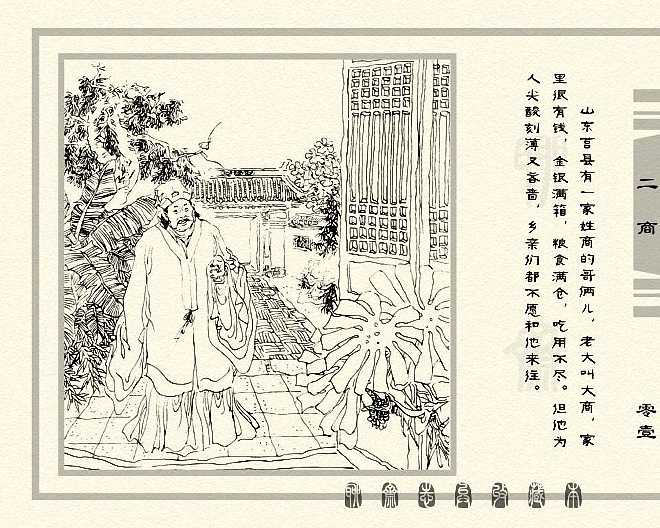 山东莒县有一家姓商的哥俩儿，老大叫大商，家
里很有钱，金银满箱，粮食满仓，吃用不尽。但他为
人尖酸刻薄又吝啬，乡亲们都不愿和他来往。
二商
零壹